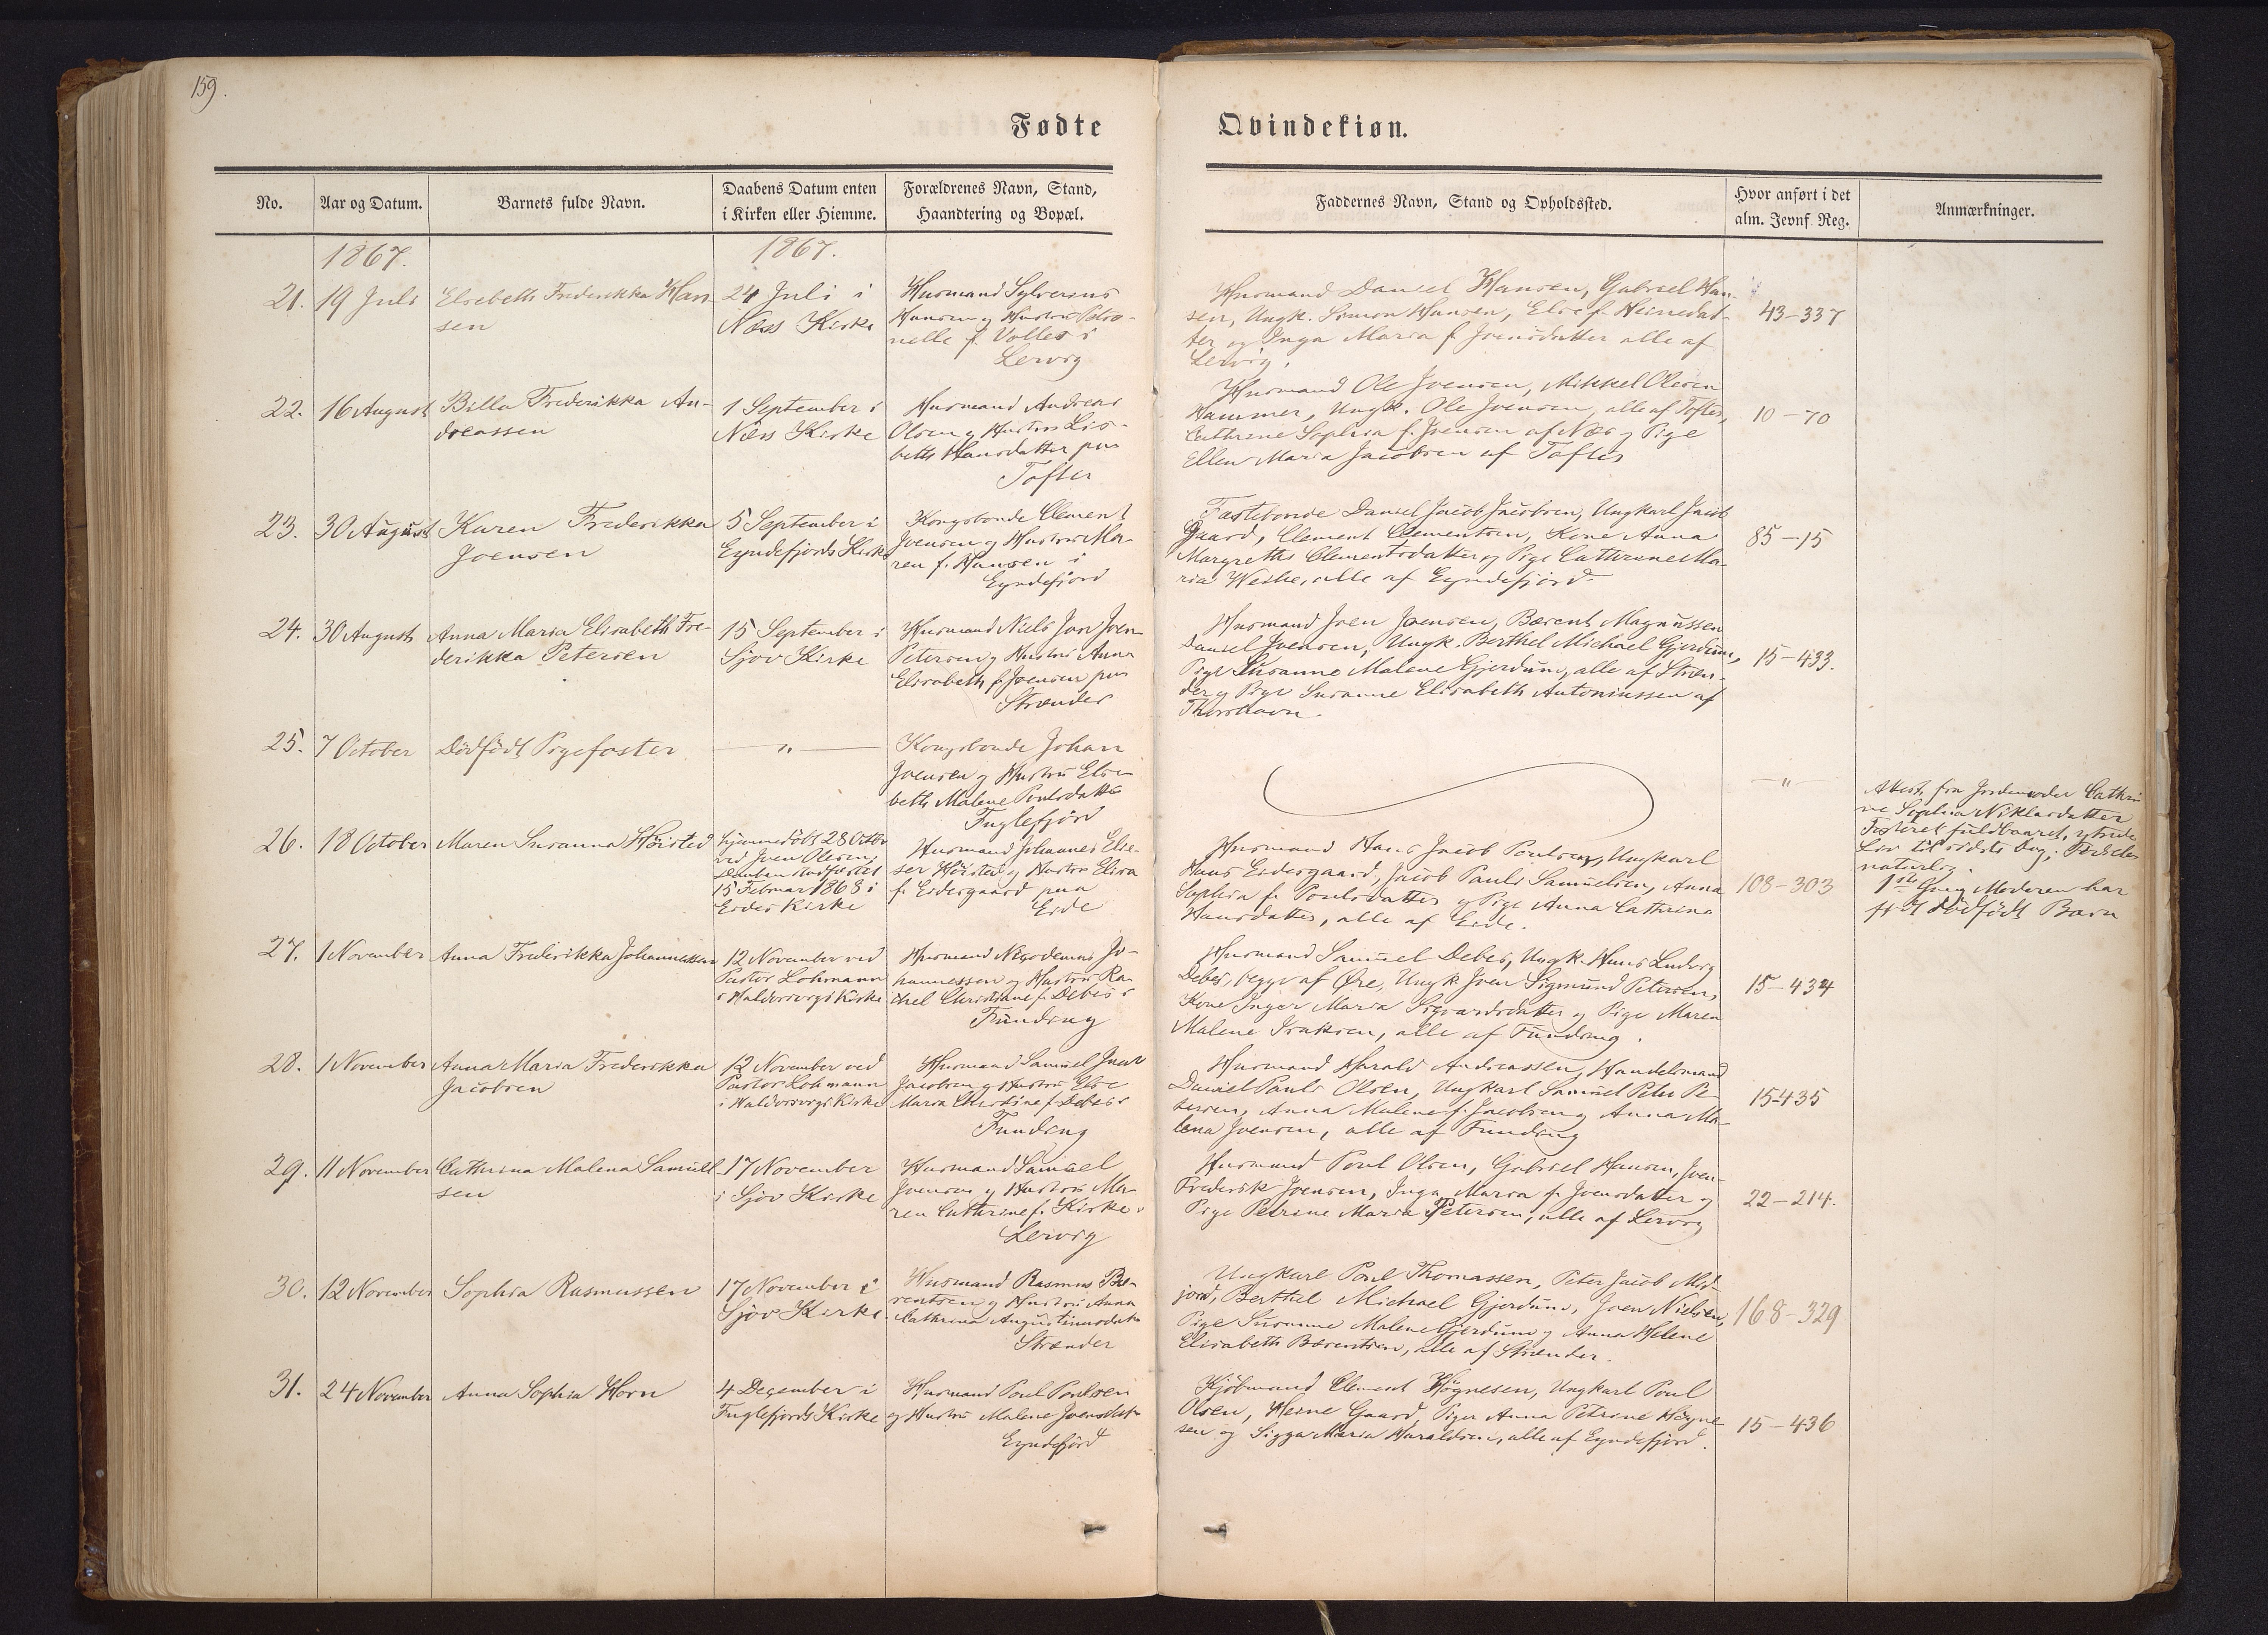 159.
Fødte
Qvindekiøn.
No.
Aar og Datum.
Barnets fulde Navn.
Daabens Datum enten
i Kirken eller Hiemme.
Forældrenes Navn, Stand,
Haandtering og Bopæl.
Faddernes Navn, Stand og Opholdssted.
Hvor anført i det
alm. Jevnf. Reg.
Anmærkninger.
1867.
1867.
21.
19 Juli
Elsebeth Frederikka Han-
sen
24 Juli i
Næs Kirke
Husmand Sylverius
Hansen og Hustru Petro-
nelle f. Volles i
Lervig
Husmand Daniel Hansen, Gabriel Han-
sen, Ungk. Simon Hansen, Else f. Heinesdat-
ter og Inga Maria f. Joensdatter alle af
Lervig.
43-337
22.
16 August
Billa Frederikka An-
dreassen
1 September i
Næs Kirke
Husmand Andreas
Olsen og Hustru Lis-
beth Hansdatter paa
Tofter
Husmand Ole Joensen, Mikkel Olesen
Hammer, Ungk. Ole Joensen, alle af Tofter,
Cathrine Sophia f. Joensen af Næs og Pige
Ellen Maria Jacobsen af Tofter
10-70
23.
30 August
Karen Frederikka
Joensen
5 September i
Eyndefjords Kirke
Kongsbonde Clement
Joensen og Hustru Ma-
ren f. Hansen i
Eyndefjord
Fæstebonde Daniel Jacob Jacobsen, Ungkarl Jacob
Gaard, Clement Clementsen, Kone Anna
Margrethe Clementsdatter og Pige Cathrine Ma-
ria Weihe, alle af Eyndefjord.
85-15
24.
30 August
Anna Maria Elisabeth Fre-
derikka Petersen
15 September i
Sjov Kirke
Husmand Niels Jon Joen-
Petersen og Hustru Anna
Elisabeth f. Joensen paa
Strænder
Husmand Joen Joensen, Bærent Magnussen
Daniel Joensen, Ungk. Berthel Michael Gjerdum,
Pige Susanne Malene Gjerdum, alle af Stræn-
der og Pige Susanne Elisabeth Antoniussen af
Thorshavn.
15-433.
25.
7 October
Dødfødt Pigefoster
— " —
Kongsbonde Johan
Joensen og Hustru Else-
beth Malene Poulsdatter
Fuglefjord
— " —
Attest fra Jordemoder Cathri-
ne Sophia Niklasdatter
Fosteret fuldbaaret,
Liv til sidste Dag; Fødselen
naturlig.
1ste Gang Moderen har
født dødfødt Barn
26.
18 October
Maren Susanna Høisted
hjemmedøbt 28 Octbr
ved Joen Olesen;
Daaben stadfæstet
15 Februar 1868 i
Eides Kirke
Husmand Johannes Elie-
ser Høisted og Hustru Elisa
f. Eidesgaard paa
Eide
Husmand Hans Jacob Poulsen, Ungkarl
Hans Eidesgaard, Jacob Pauli Samuelsen, Anna
Sophia f. Poulsdatter og Pige Anna Cathrina
Hansdatter, alle af Eide.
108-303
27.
1 November
Anna Frederikka Johannessen
12 November ved
Pastor Lohmann
i Haldersvigs Kirke
Husmand Nigodemus Jo-
hannessen og Hustru Ra-
chel Christiane f. Debes i
Funding
Husmand Samuel Debes, Ungk. Hans Ludvig
Debes, begge af Øre, Ungk Joen Sigmund Petersen,
Kone Inger Maria Sigvardsdatter og Pige Maren
Malene Isaksen, alle af Funding.
15-434
28.
1 November
Anna Maria Frederikka
Jacobsen
12 November ved
Pastor Lohmann
i Haldersvigs Kirke
Husmand Samuel Jacob
Jacobsen og Hustru Else
Maria Christine f. Debes i
Funding
Husmand Harald Andreassen, Handelsmand
Daniel Pauli Olsen, Ungkarl Samuel Peter Pe-
tersen, Anna Malene f. Jacobsen og Anna Ma-
lena Joensen, alle af Funding
15-435
29.
11 November
Cathrina Malena Samuel-
sen
17 November
i Sjov Kirke
Husmand Samuel
Joensen og Hustru Ma-
ren Cathrine f. Kirke i
Lervig
Husmand Poul Olsen, Gabriel Hansen, Joen-
Frederik Joensen, Inga Maria f. Joensdatter og
Pige Petrine Maria Petersen, alle af Lervig
22-214.
30.
12 November
Sophia Rasmussen
17 November i
Sjov Kirke.
Husmand Rasmus Bæ-
rentsen og Hustru Anna
Cathrina Augustinusdatter
Strænder
Ungkarl Poul Thomassen, Peter Jacob Mid-
jord, Berthel Michael Gjerdum, Joen Nielsen,
Pige Susanne Malene Gjerdum og Anna Helene
Elisabeth Bærentsen, alle af Strænder.
168-329
31.
24 November
Anna Sophia Horn
4 December i
Fuglefjords Kirke
Husmand Poul Poulsen
og Hustru Malene Joensdatter
Eyndefjord
Kjøbmand Clement Høgnesen, Ungkarl Poul
Olsen, Heine Gaard, Piger Anna Petrine Høgne-
sen og Sigga Maria Haraldsen, alle af Eyndefjord.
15-436